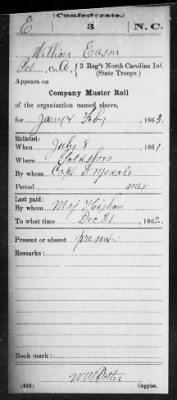 (Confederate.)
E 3 N.C.
William Eason
Pvt, Co. A, 3 Reg't North Carolina Inf.
(State Troops.)
Appears on
Company Muster Roll
of the organization named above,
for Jany & Feby, 1863.
Enlisted:
When July 8, 1861.
Where Goldsboro
By whom Capt Drysdale
Period war
Last paid:
By whom Maj
To what time Dec 31, 1862.
Present or absent present
Remarks:
Book mark:
(642) Copyist.